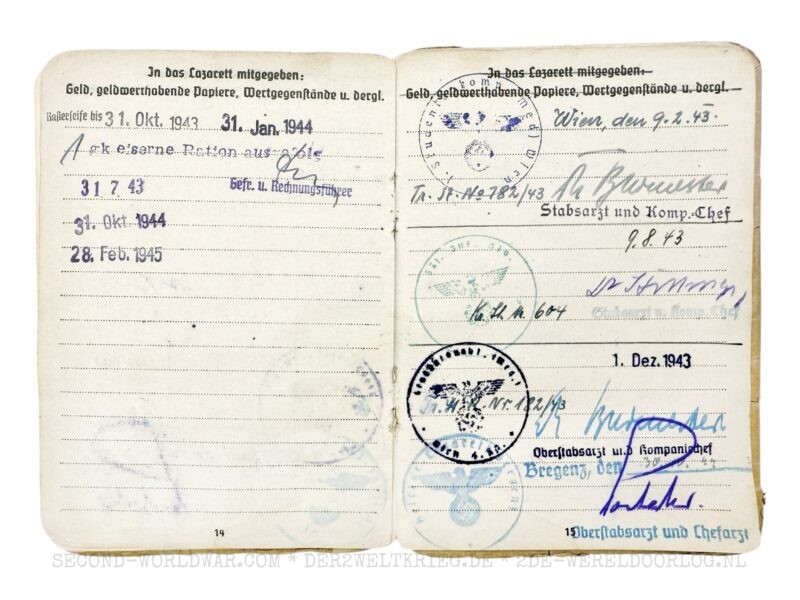 In das Lazarett mitgegeben:
Geld, geldwerthabende Papiere, Wertgegenstände u. dergl.
Rasierseife bis 31. Okt. 1943 31. Jan. 1944
1 gk eiserne Ration
31 7 43
Gefr. u. Rechnungsführer
31. Okt 1944
28. Feb. 1945
14
In das Lazarett mitgegeben:
Geld, geldwerthabende Papiere, Wertgegenstände u. dergl.
Wien, den 9.2.43.
Tr. St. No 782/43
Stabsarzt und Komp.-Chef
9.8.43
604
Stabsarzt u. Komp. Chef
1. Dez. 1943
Nr. 182/43
Wien 4. Kp.
Oberstabsarzt und Kompaniechef
Bregenz, den
15
Oberstabsarzt und Chefarzt
SECOND-WORLDWAR.COM * DER2WELTKRIEG.DE * 2DE-WERELDOORLOG.NL